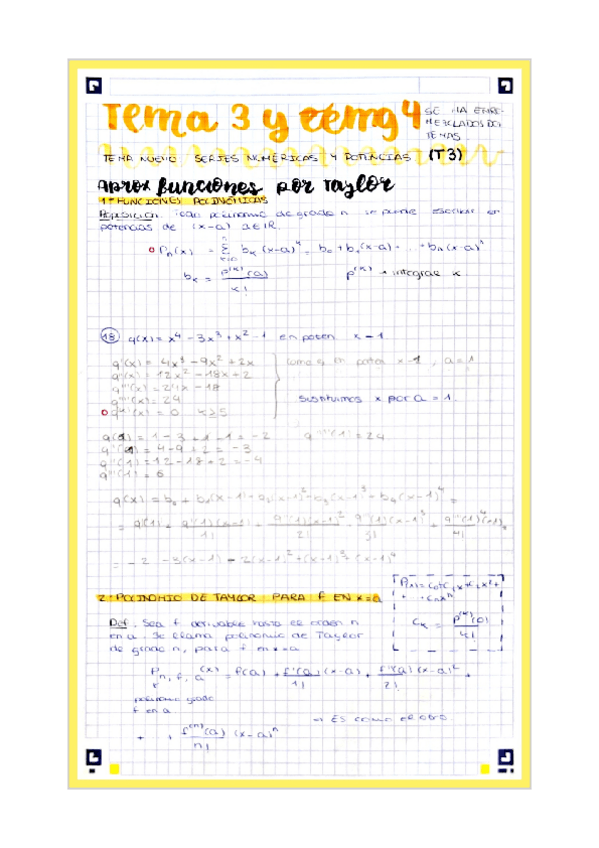 Tema 3 y tema 4
SE HA ENTRE-
MEZCLADOS DOS
TEMAS.
TEMA NUEVO SERIES NUMÉRICAS Y POTENCIAS (T3)
Aprox funciones por Taylor
1º FUNCIONES POLINÓMICAS
Proposición: Todo polinomio de grado n se puede escribir en
potencias de (x-a) a∈ℝ.
Pₙ(x) = Σ bₖ (x-a)ᵏ = b₀ + b₁(x-a) + ... + bₙ(x-a)ⁿ
bₖ = p⁽ᵏ⁾(a) / k!
18 q(x) = x⁴ - 3x³ + x² - 1 en poten x-1
q'(x) = 4x³ - 9x² + 2x
q''(x) = 12x² - 18x + 2
q'''(x) = 24x - 18
q''''(x) = 24
(x) = 0 k≥5
como en poten x-1, a=1
Sustituimos x por a = 1.
q(1) = 1-3+1-1 = -2
q'(1) = 4-9+2 = -3
q''(1) = 12-18+2 = -4
q'''(1) = 6
q''''(1) = 24
q(x) = b₀ + b₁(x-1) + b₂(x-1)² + b₃(x-1)³ + b₄(x-1)⁴ =
= q(1) + q'(1)(x-1) / 1! + q''(1)(x-1)² / 2! + q'''(1)(x-1)³ / 3! + q''''(1)(x-1)⁴ / 4! =
= -2 -3(x-1) - 2(x-1)² + (x-1)³ + (x-1)⁴
2º POLINOMIO DE TAYLOR PARA f EN x=a
P(x) = c₀ + c₁x + c₂x² +
+ ... + cₙxⁿ
cₖ = p⁽ᵏ⁾(0) / k!
Def: Sea f derivable hasta el orden n
en a. Se llama polinomio de Taylor
de grado n, para f en x=a
Pₙ,f,a(x) = f(a) + f'(a)(x-a) / 1! + f''(a)(x-a)² / 2! +
polinomio grado
f en a
→ ES COMO EL OTRO
+ ... + f⁽ⁿ⁾(a) (x-a)ⁿ / n!